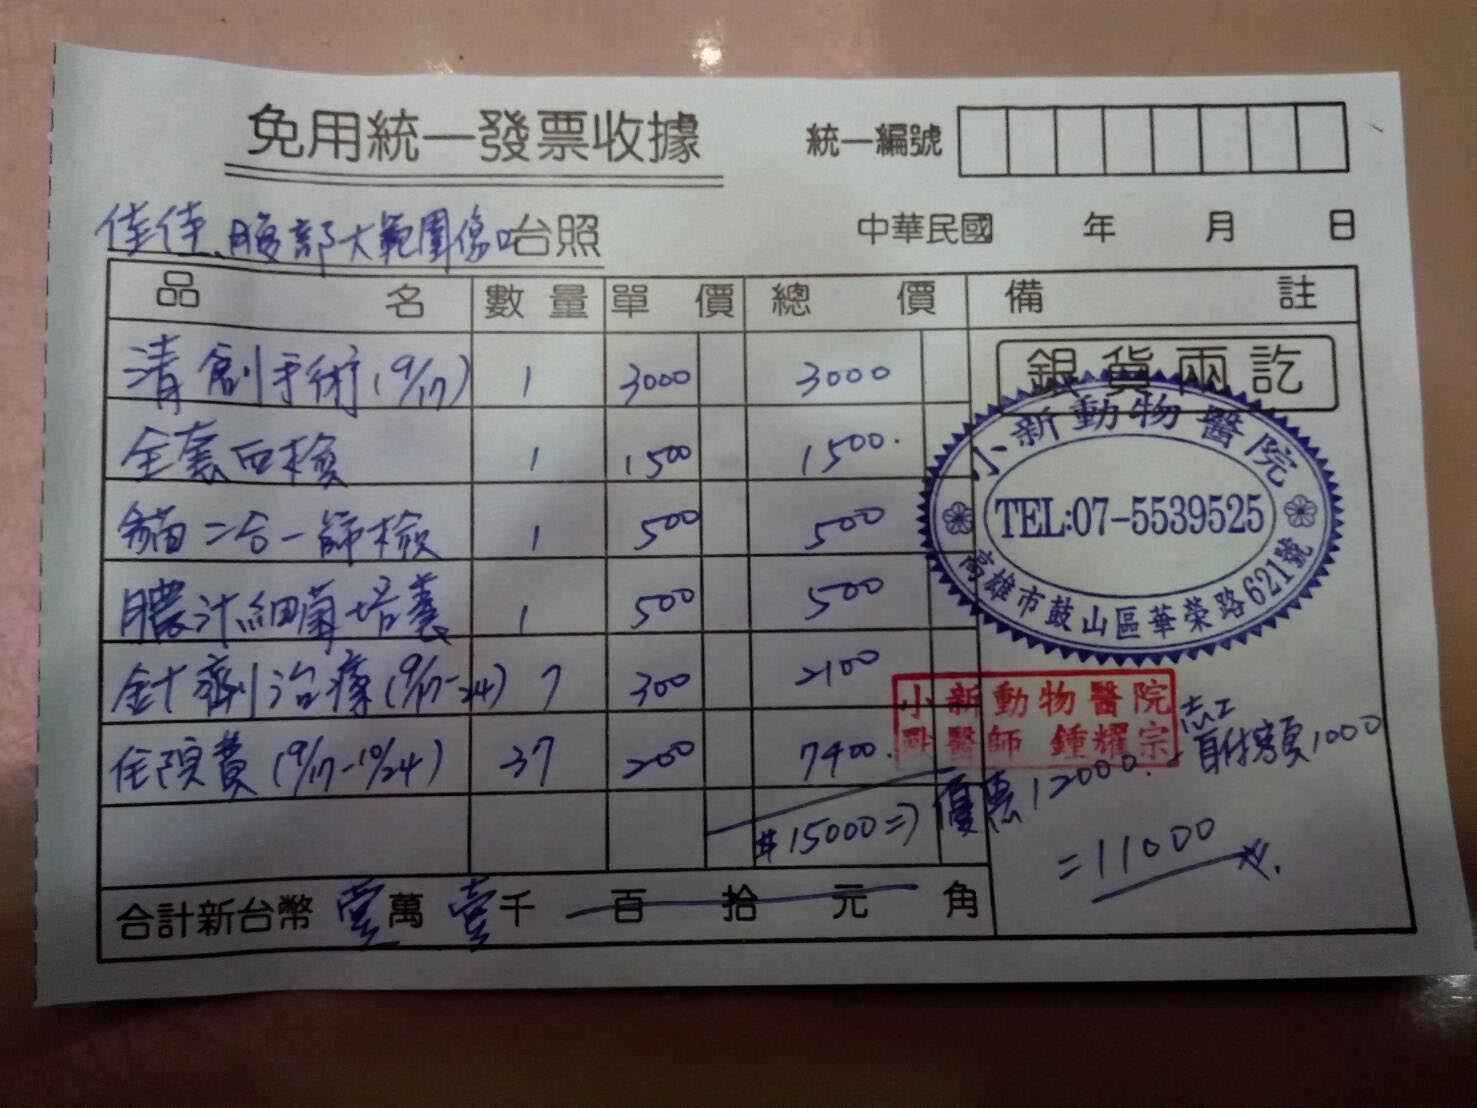 免用統一發票收據
統一編號
佳佳、腹部大範圍傷口台照
中華民國 年 月 日
品名 數量 單價 總價 備註
清創手術(9/17) 1 3000 3000
銀貨兩訖
全套血檢 1 1500 1500.
貓二合一篩檢 1 500 500
膿汁細菌培養 1 500 500
針劑治療(9/17-24) 7 300 2100
住院費(9/17-10/24) 37 200 7400.
小新動物醫院
TEL:07-5539525
高雄市鼓山區華榮路621號
小新動物醫院
獸醫師 鍾耀宗
$15000=>優惠12000.-志工自付額1000
=11000
合計新台幣 壹萬 壹千 百 拾 元 角